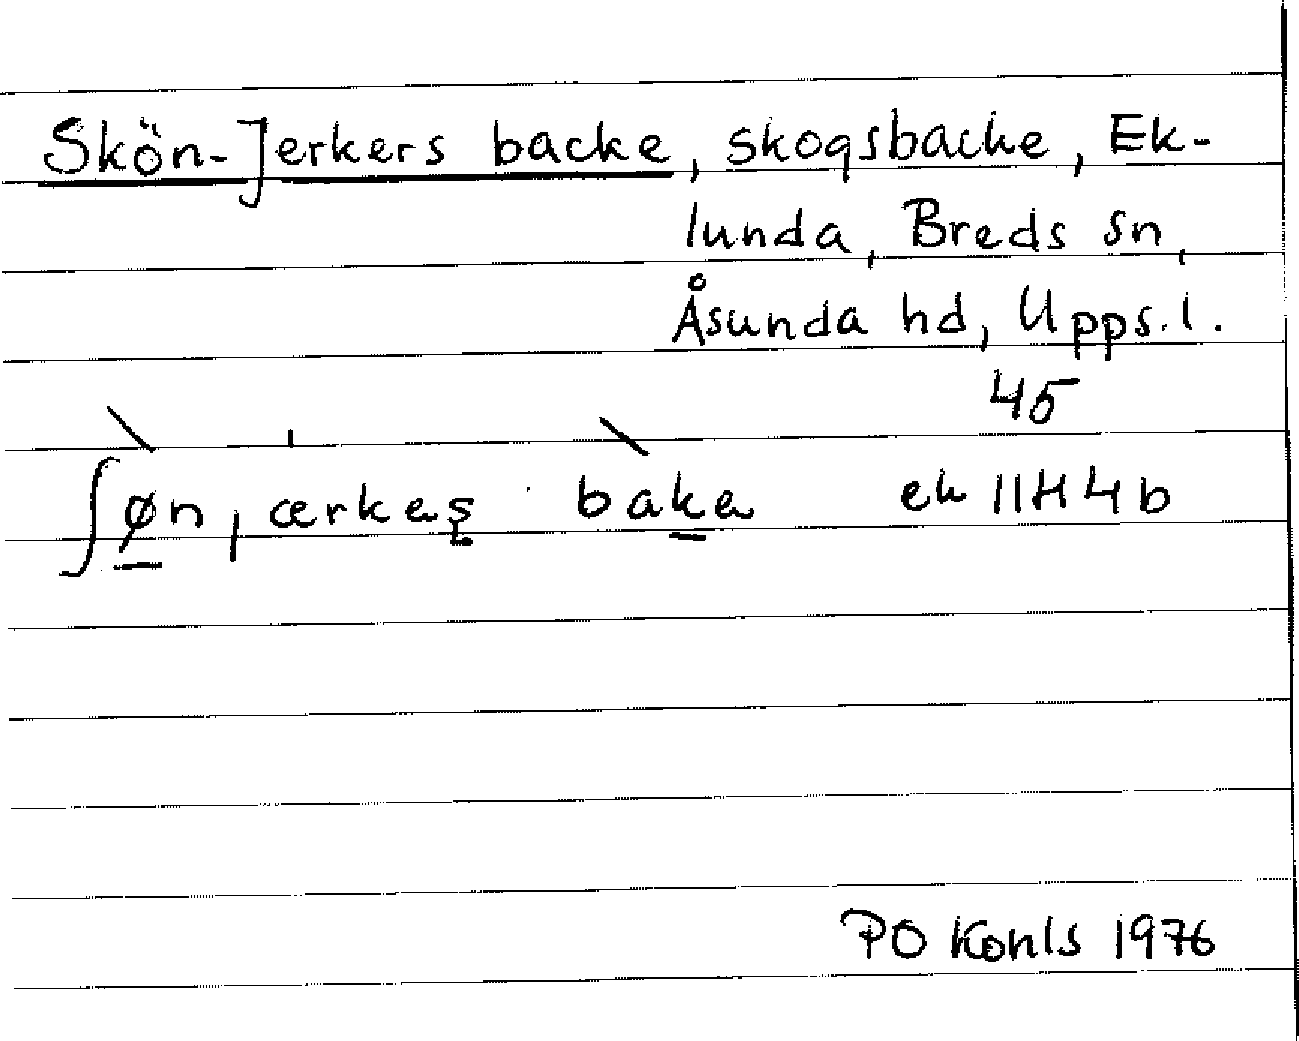 Skön-Jerkers backe, skogsbacke, Ek-
lunda, Breds sn,
Åsunda hd, Upps.l.
45
ʃøn, ærkeş bake ek 11H4b
PO Kohls 1976